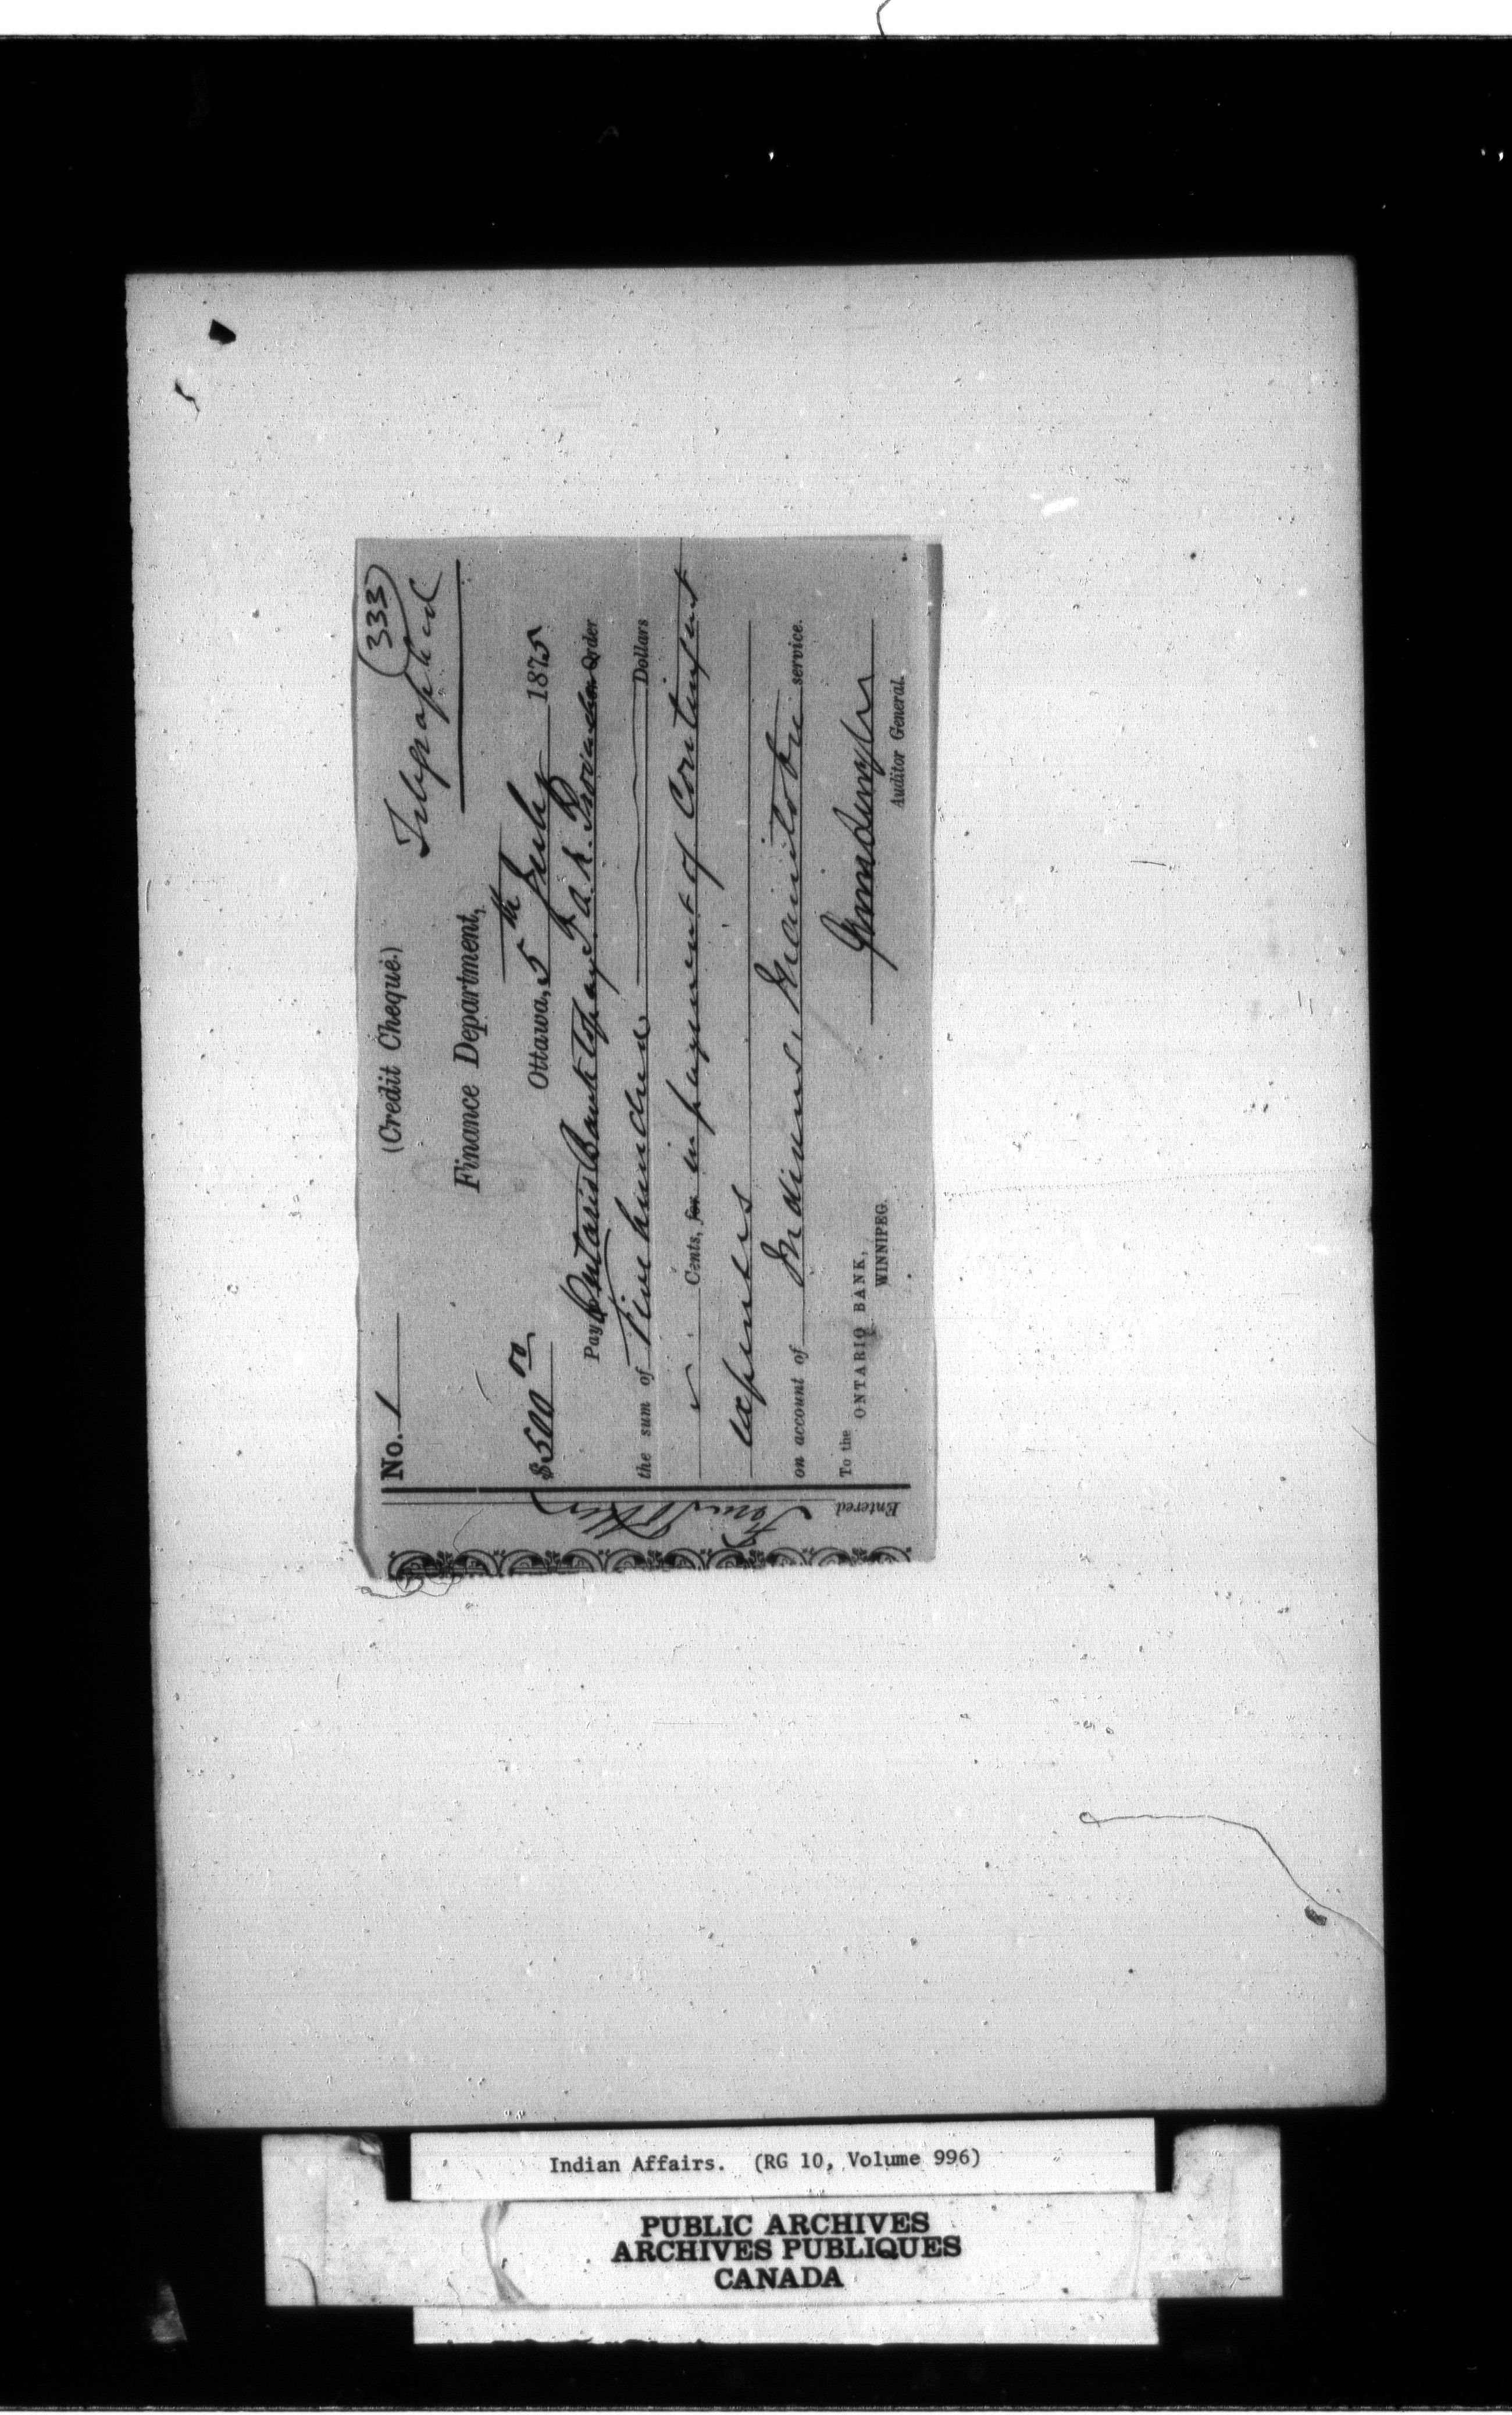 (333)
No. 1 (Credit Cheque.) Telegraphed
Finance Department,
$500 00 Ottawa, 5th July 1875
Pay Ontario Bank to pay J. A. N. Provencher Order
the sum of Five hundred Dollars
Cents, for in payment of Contingent
expenses
on account of Indians, Manitoba service.
To the ONTARIO BANK,
WINNIPEG.
Auditor General.
Entered
Indian Affairs. (RG 10, Volume 996)
PUBLIC ARCHIVES
ARCHIVES PUBLIQUES
CANADA